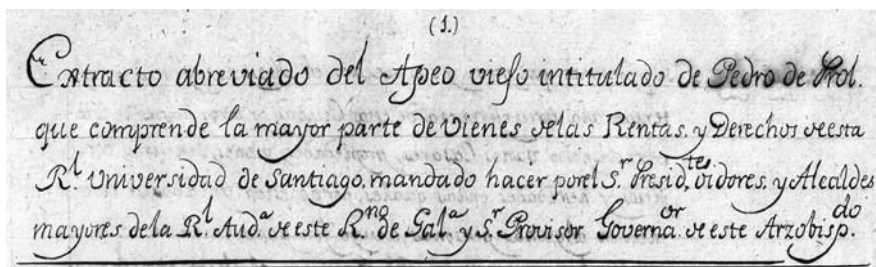 (1.)
Extracto abreviado del Apeo viejo intitulado de Pedro de Prol.
que comprende la mayor parte de Vienes de las Rentas, y Derechos de esta
R.l Universidad de Santiago, mandado hacer por el S.r Presid.te, oidores, y Alcaldes
mayores de la R.l Aud.a de este R.no de Gal.a y S.r Provisor Governa.or de este Arzobisp.do